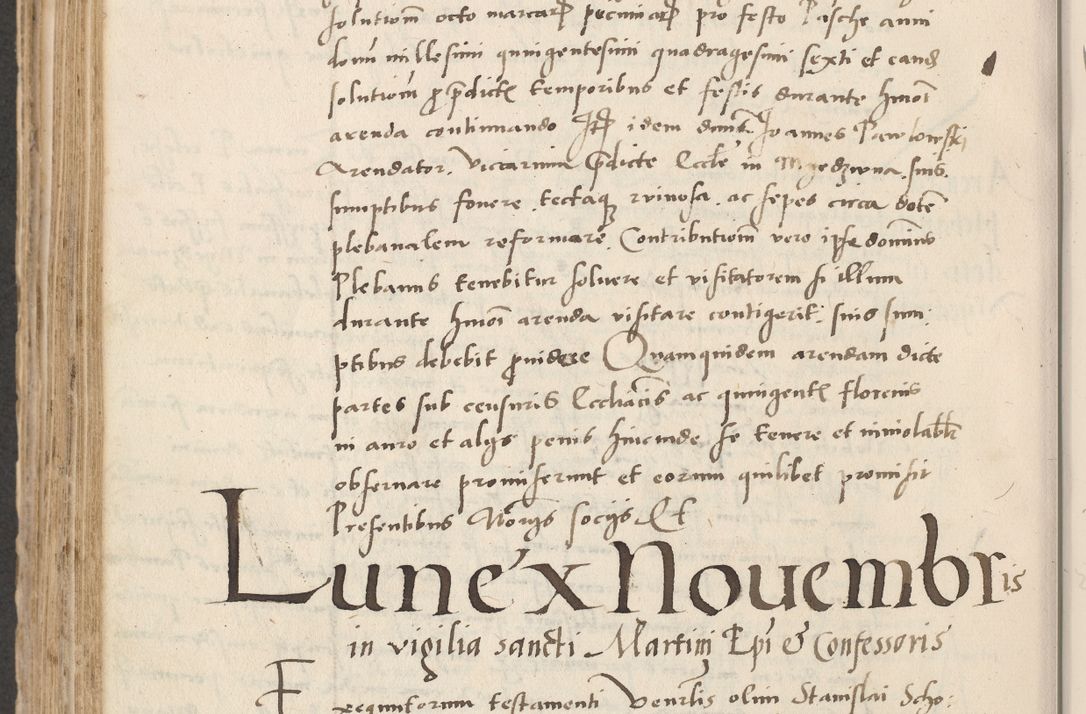 solutiom̄ octo marcarꝝ pecuniarꝝ pro festo Pasche anni
domī millesimi quingentesimi quadragesimi sexti et eandꝫ
solutiom̄ ꝓ p̄dictꝭ temporibus et festis durante hmōi
arenda continuando Itꝫ idem dn̄us Joannes Pawlowski
Arendator. viccarium p̄dicte Eccle in Mzedzwna. suis.
sumptibus fouere. tectaqꝫ ruinosa. ac sepes circa dotē
plebanalem reformare. Contributiom̄ vero ipse dominus
Plebanus tenebitur soluere et visitatorem si illum
durante hmōi arenda visitare contigerit. suis sum:
ptibus debebit ꝓuidere Quamquidem arendam dicte
partes sub censuris Eccliacis ac quingentꝭ florenis
in auro et alijs penis hincinde se tenere et inuiolabłr
obseruare promiserunt et eorum quilibet promisit
Presentibus Norijs socijs Et
Lune x Nouembris
in vigilia sancti Martinj Epi & Confessoris
Exequutorum testamenti Venerłis olim Stanislai Scho: